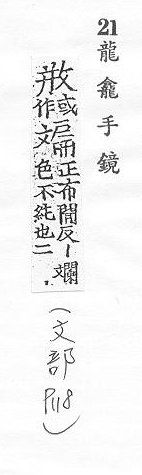 21 龍龕手鏡
或二正布間反丨斕
作文色不純也二
(文部 P118)